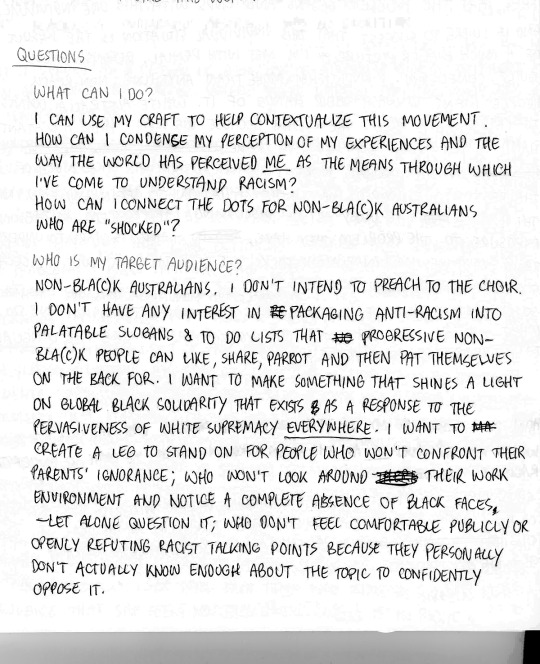 QUESTIONS
WHAT CAN I DO?
I CAN USE MY CRAFT TO HELP CONTEXTUALIZE THIS MOVEMENT.
HOW CAN I CONDENSE MY PERCEPTION OF MY EXPERIENCES AND THE
WAY THE WORLD HAS PERCEIVED ME AS THE MEANS THROUGH WHICH
I'VE COME TO UNDERSTAND RACISM?
HOW CAN I CONNECT THE DOTS FOR NON-BLA(C)K AUSTRALIANS
WHO ARE "SHOCKED"?
WHO IS MY TARGET AUDIENCE?
NON-BLA(C)K AUSTRALIANS. I DON'T INTEND TO PREACH TO THE CHOIR.
I DON'T HAVE ANY INTEREST IN PACKAGING ANTI-RACISM INTO
PALATABLE SLOGANS & TO DO LISTS THAT PROGRESSIVE NON-
BLA(C)K PEOPLE CAN LIKE, SHARE, PARROT AND THEN PAT THEMSELVES
ON THE BACK FOR. I WANT TO MAKE SOMETHING THAT SHINES A LIGHT
ON GLOBAL BLACK SOLIDARITY THAT EXISTS & AS A RESPONSE TO THE
PERVASIVENESS OF WHITE SUPREMACY EVERYWHERE. I WANT TO
CREATE A LEG TO STAND ON FOR PEOPLE WHO WON'T CONFRONT THEIR
PARENTS' IGNORANCE; WHO WON'T LOOK AROUND THEIR WORK
ENVIRONMENT AND NOTICE A COMPLETE ABSENCE OF BLACK FACES,
—LET ALONE QUESTION IT; WHO DON'T FEEL COMFORTABLE PUBLICLY OR
OPENLY REFUTING RACIST TALKING POINTS BECAUSE THEY PERSONALLY
DON'T ACTUALLY KNOW ENOUGH ABOUT THE TOPIC TO CONFIDENTLY
OPPOSE IT.